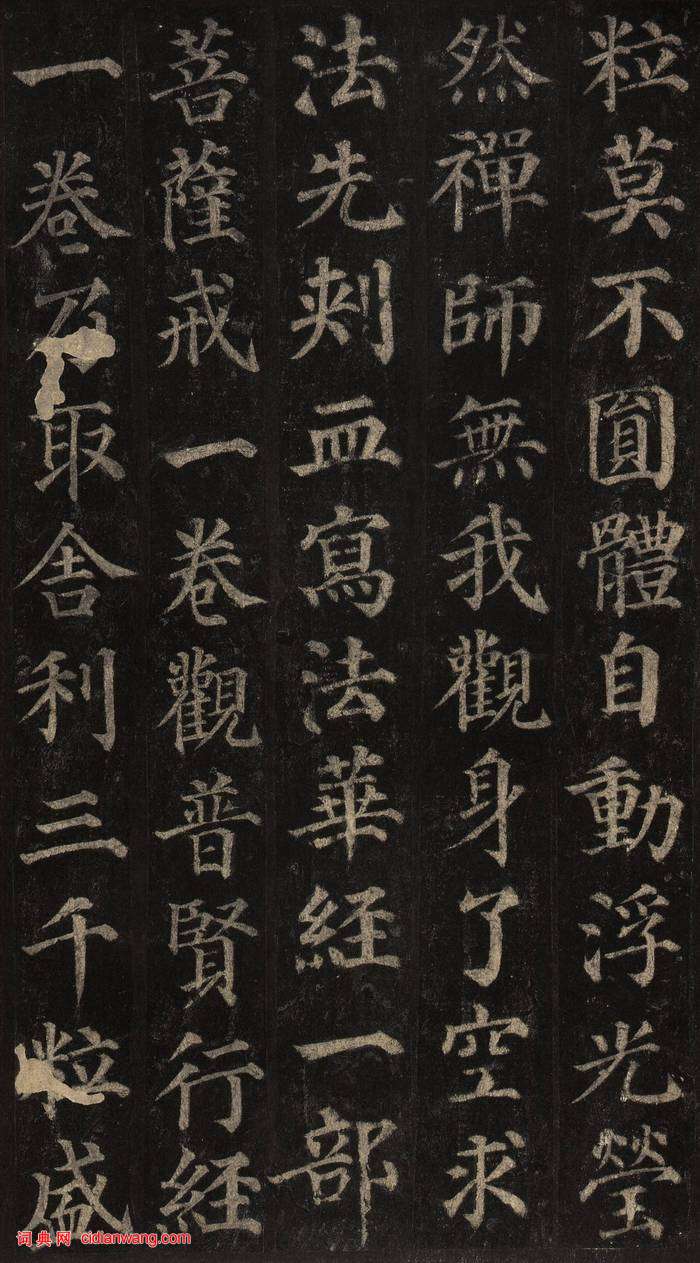 粒莫不圓體自動浮光瑩
然禪師無我觀身了空求
法先刺血寫法華経一部
菩薩戒一卷觀普賢行経
一卷乃取舎利三千粒盛
词典网 cidianwang.com